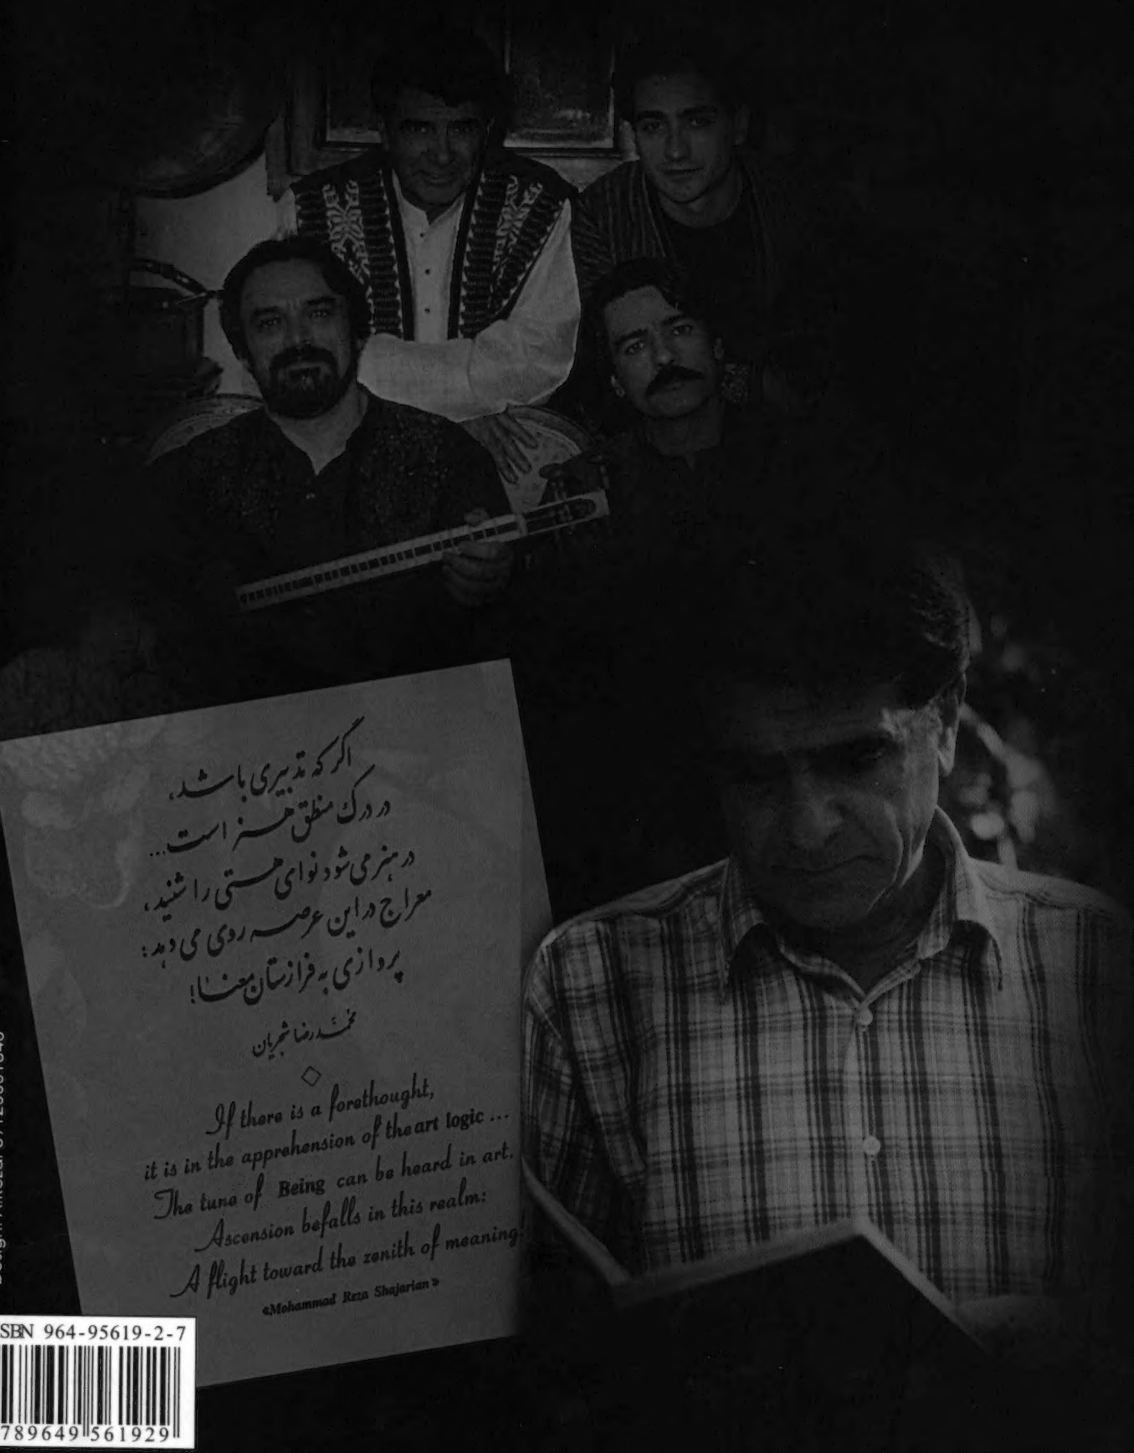 اگر که تدبیری باشد،
در درک منطق هنر است...
در هنر می‌شود نوای هستی را شنید،
معراج در این عرصه روی می‌دهد:
پروازی به فرازستان معنا!
محمدرضا شجریان
If there is a forethought,
it is in the apprehension of the art logic ...
The tune of Being can be heard in art.
Ascension befalls in this realm:
A flight toward the zenith of meaning!
«Mohammad Reza Shajarian»
SBN 964-95619-2-7
789649 561929